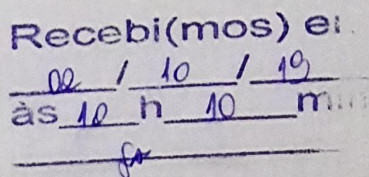 Recebi(mos) e
02 / 10 / 19
às 10 h 10 m